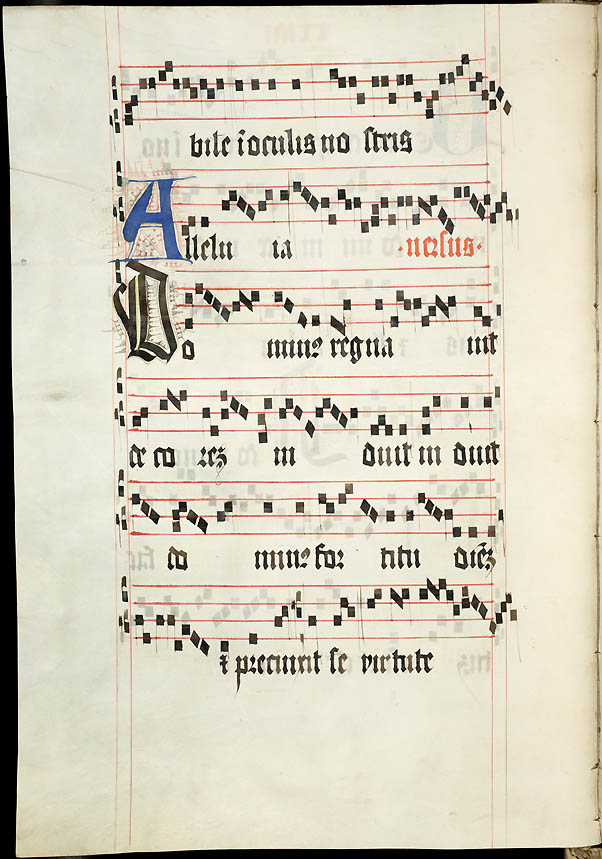 bile ī oculis no stris
Allelu ia · uersus ·
Do minꝰ regna uit
de co reꝫ in duit in duit
do minꝰ for titu dīeꝫ
⁊ precinxit se uirtute